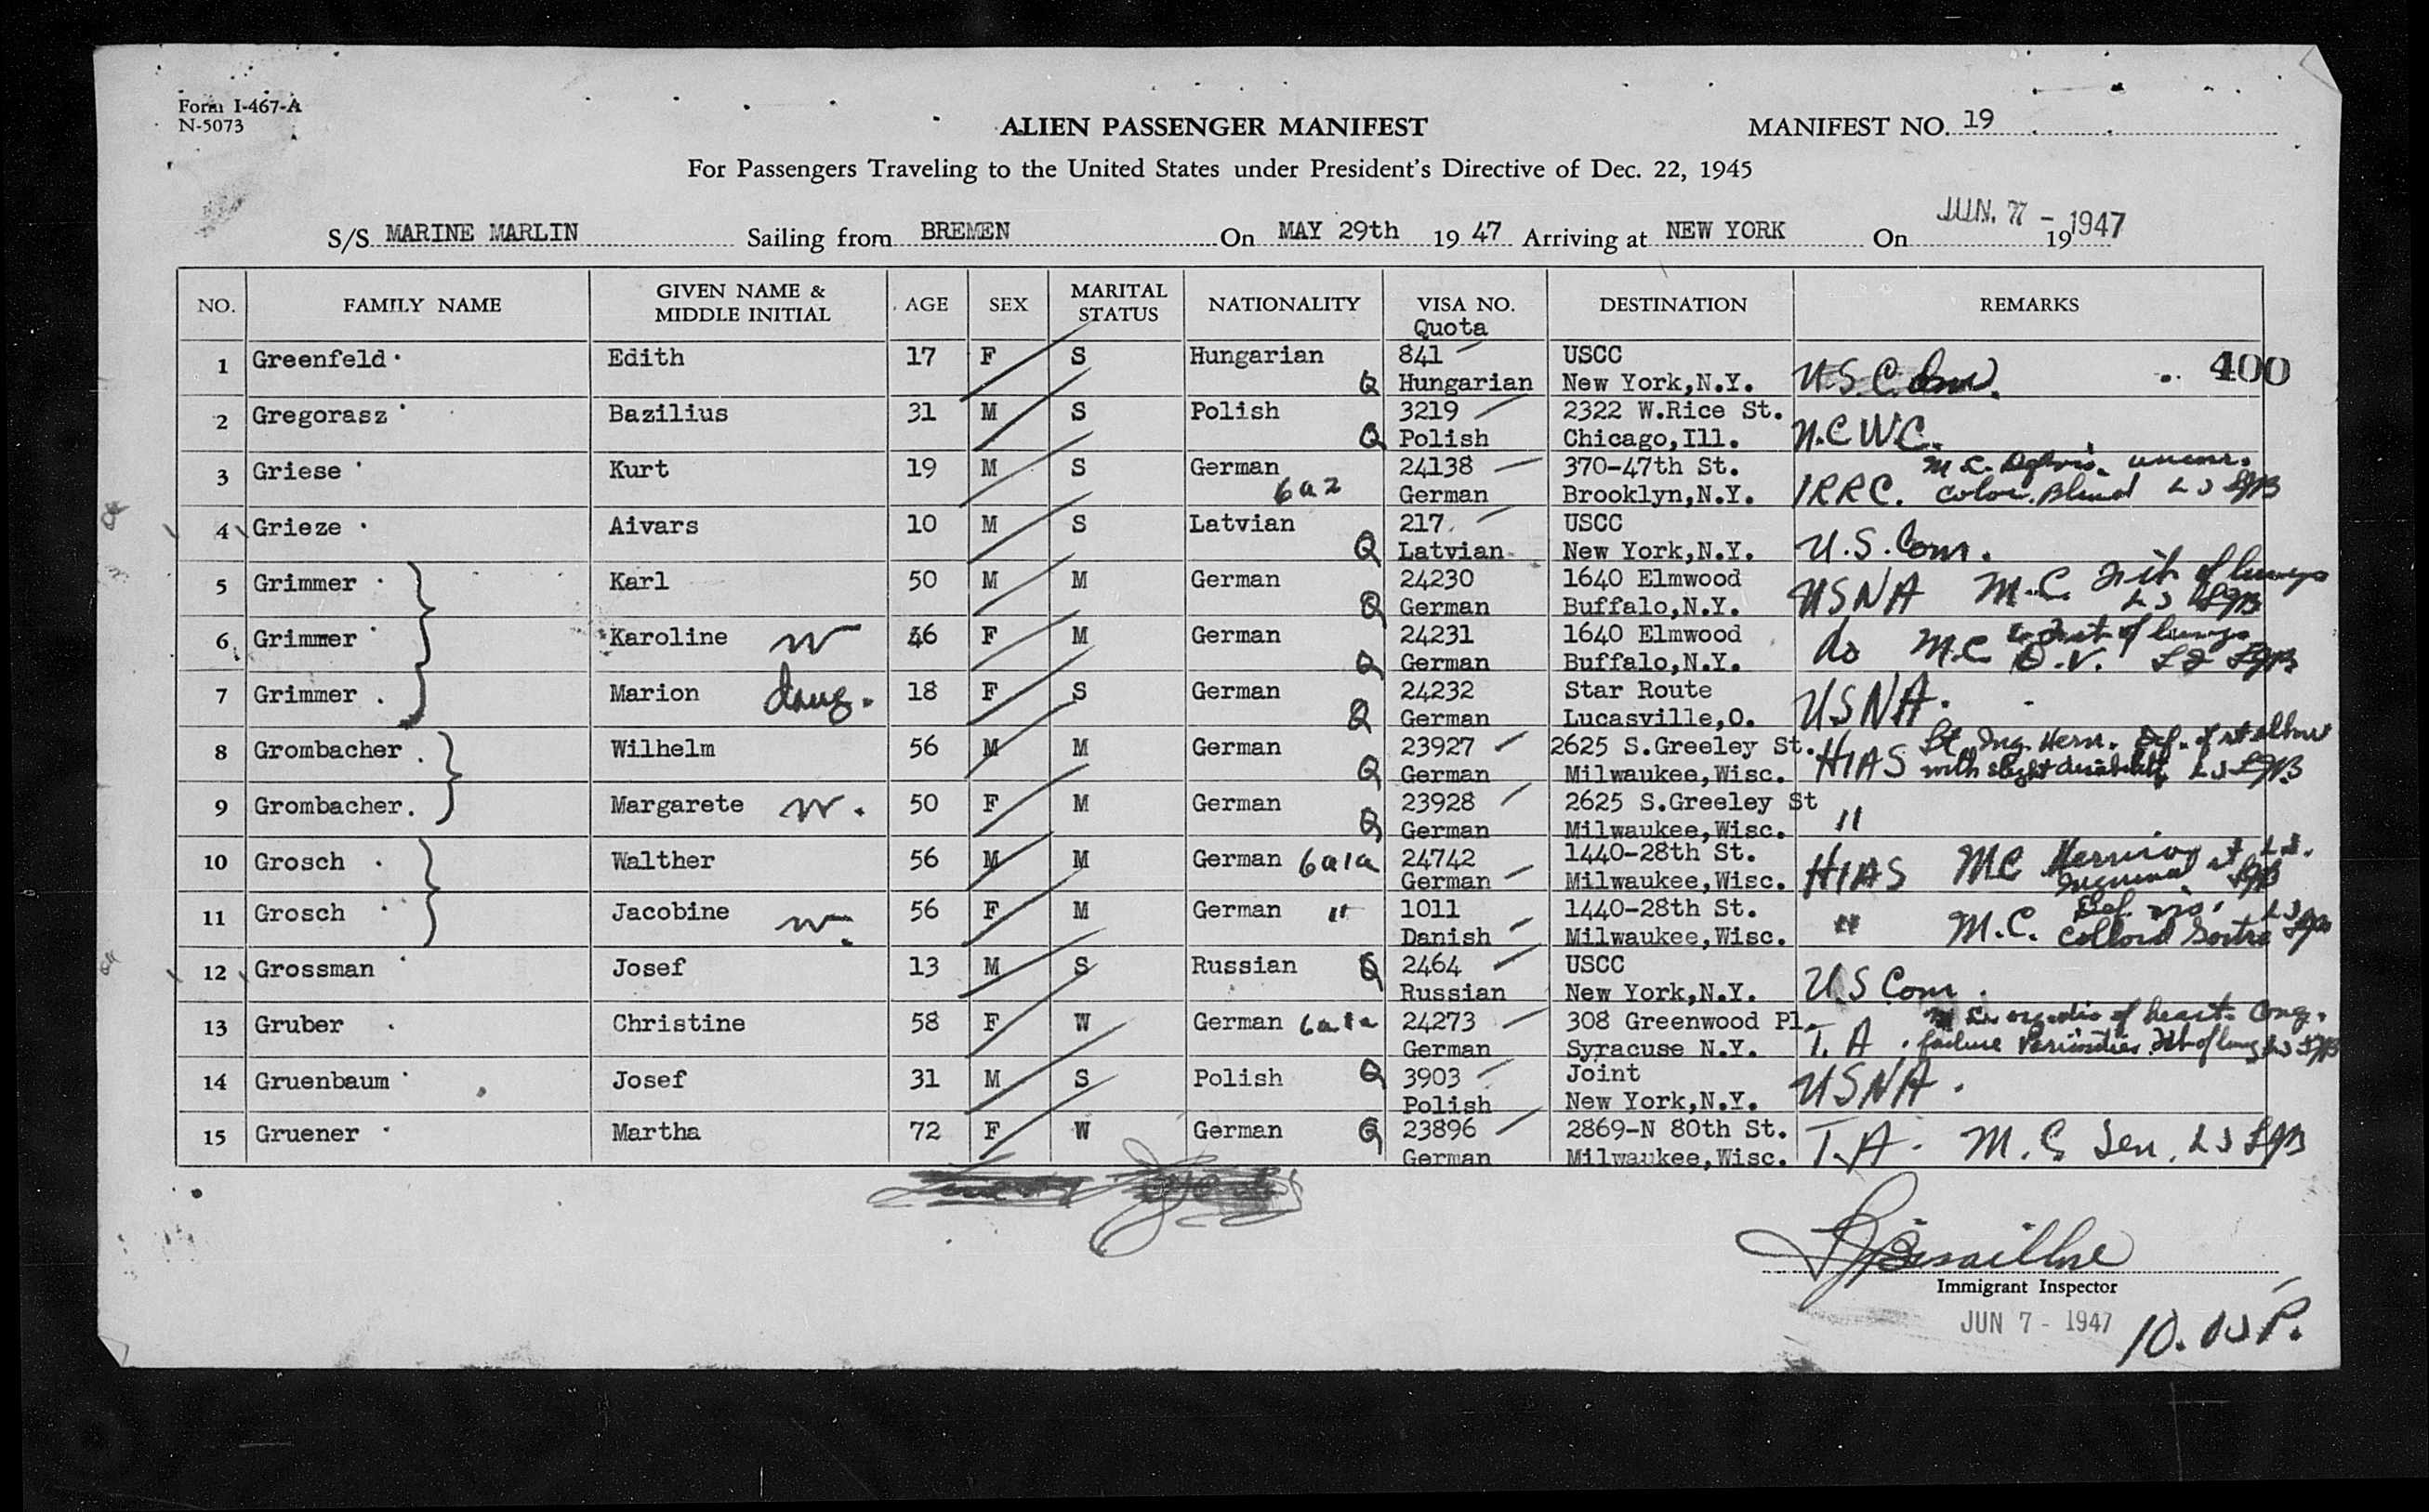 Form I-467-A
N-5073
ALIEN PASSENGER MANIFEST
MANIFEST NO. 19
For Passengers Traveling to the United States under President's Directive of Dec. 22, 1945
S/S MARINE MARLIN Sailing from BREMEN On MAY 29th 19 47 Arriving at NEW YORK On JUN. 7 - 1947 19
NO. FAMILY NAME GIVEN NAME & MIDDLE INITIAL AGE SEX MARITAL STATUS NATIONALITY VISA NO. Quota DESTINATION REMARKS
400
1 Greenfeld Edith 17 F S Hungarian 841 USCC
Q Hungarian New York,N.Y. U.S.C.
2 Gregorasz Bazilius 31 M S Polish 3219 2322 W.Rice St.
Q Polish Chicago,Ill. N.C.W.C.
3 Griese Kurt 19 M S German 24138 370-47th St. M.C.
6a2 German Brooklyn,N.Y. IRRC. Color Blind
4 Grieze Aivars 10 M S Latvian 217 USCC
Q Latvian New York,N.Y. U.S. Com.
5 Grimmer Karl 50 M M German 24230 1640 Elmwood
Q German Buffalo,N.Y. USNA M.C. of lungs
6 Grimmer Karoline W 46 F M German 24231 1640 Elmwood
Q German Buffalo,N.Y. do M.C. of lungs
7 Grimmer Marion daug. 18 F S German 24232 Star Route
Q German Lucasville,O. USNA.
8 Grombacher Wilhelm 56 M M German 23927 2625 S.Greeley St.
Q German Milwaukee,Wisc. HIAS Ing. Hern. Def. of rt elbow
with slight disability
9 Grombacher Margarete W. 50 F M German 23928 2625 S.Greeley St
Q German Milwaukee,Wisc. "
10 Grosch Walther 56 M M German 6a1a 24742 1440-28th St.
German Milwaukee,Wisc. HIAS MC Hernia rt
Inguinal
11 Grosch Jacobine W. 56 F M German " 1011 1440-28th St.
Danish Milwaukee,Wisc. " M.C. Def. vis.
Colloid Goitre
12 Grossman Josef 13 M S Russian Q 2464 USCC
Russian New York,N.Y. U S Com.
13 Gruber Christine 58 F W German 6a1a 24273 308 Greenwood Pl. of heart. Cong.
German Syracuse N.Y. T. A. failure
14 Gruenbaum Josef 31 M S Polish Q 3903 Joint
Polish New York,N.Y. USNA.
15 Gruener Martha 72 F W German Q 23896 2869-N 80th St.
German Milwaukee,Wisc. T.A. M.C. Sen.
Immigrant Inspector
JUN 7 - 1947